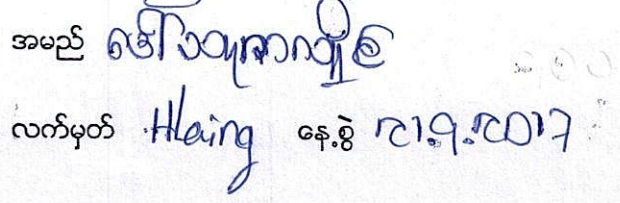 အမည် ဒေါ်သူဇာလှိုင်
လက်မှတ် Hlaing နေ့စွဲ ၎၁.၉.၎၀၁၇